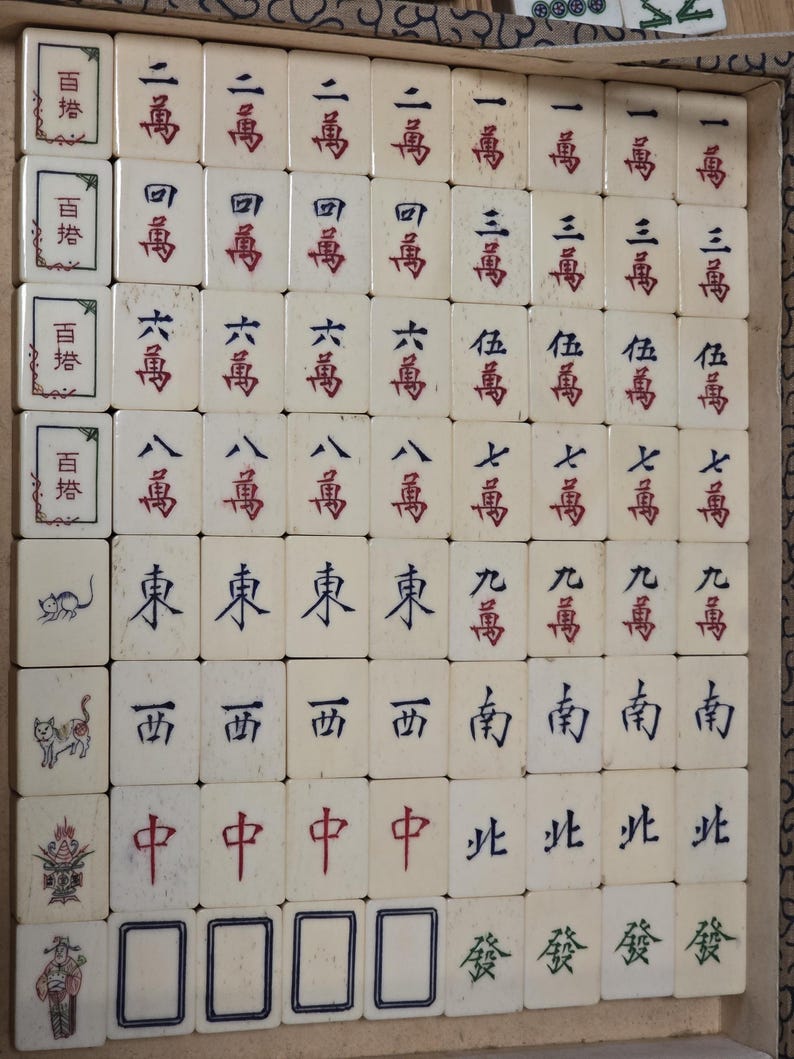 百搭 二萬 二萬 二萬 二萬 一萬 一萬 一萬 一萬
百搭 四萬 四萬 四萬 四萬 三萬 三萬 三萬 三萬
百搭 六萬 六萬 六萬 六萬 伍萬 伍萬 伍萬 伍萬
百搭 八萬 八萬 八萬 八萬 七萬 七萬 七萬 七萬
東 東 東 東 九萬 九萬 九萬 九萬
西 西 西 西 南 南 南 南
中 中 中 中 北 北 北 北
發 發 發 發